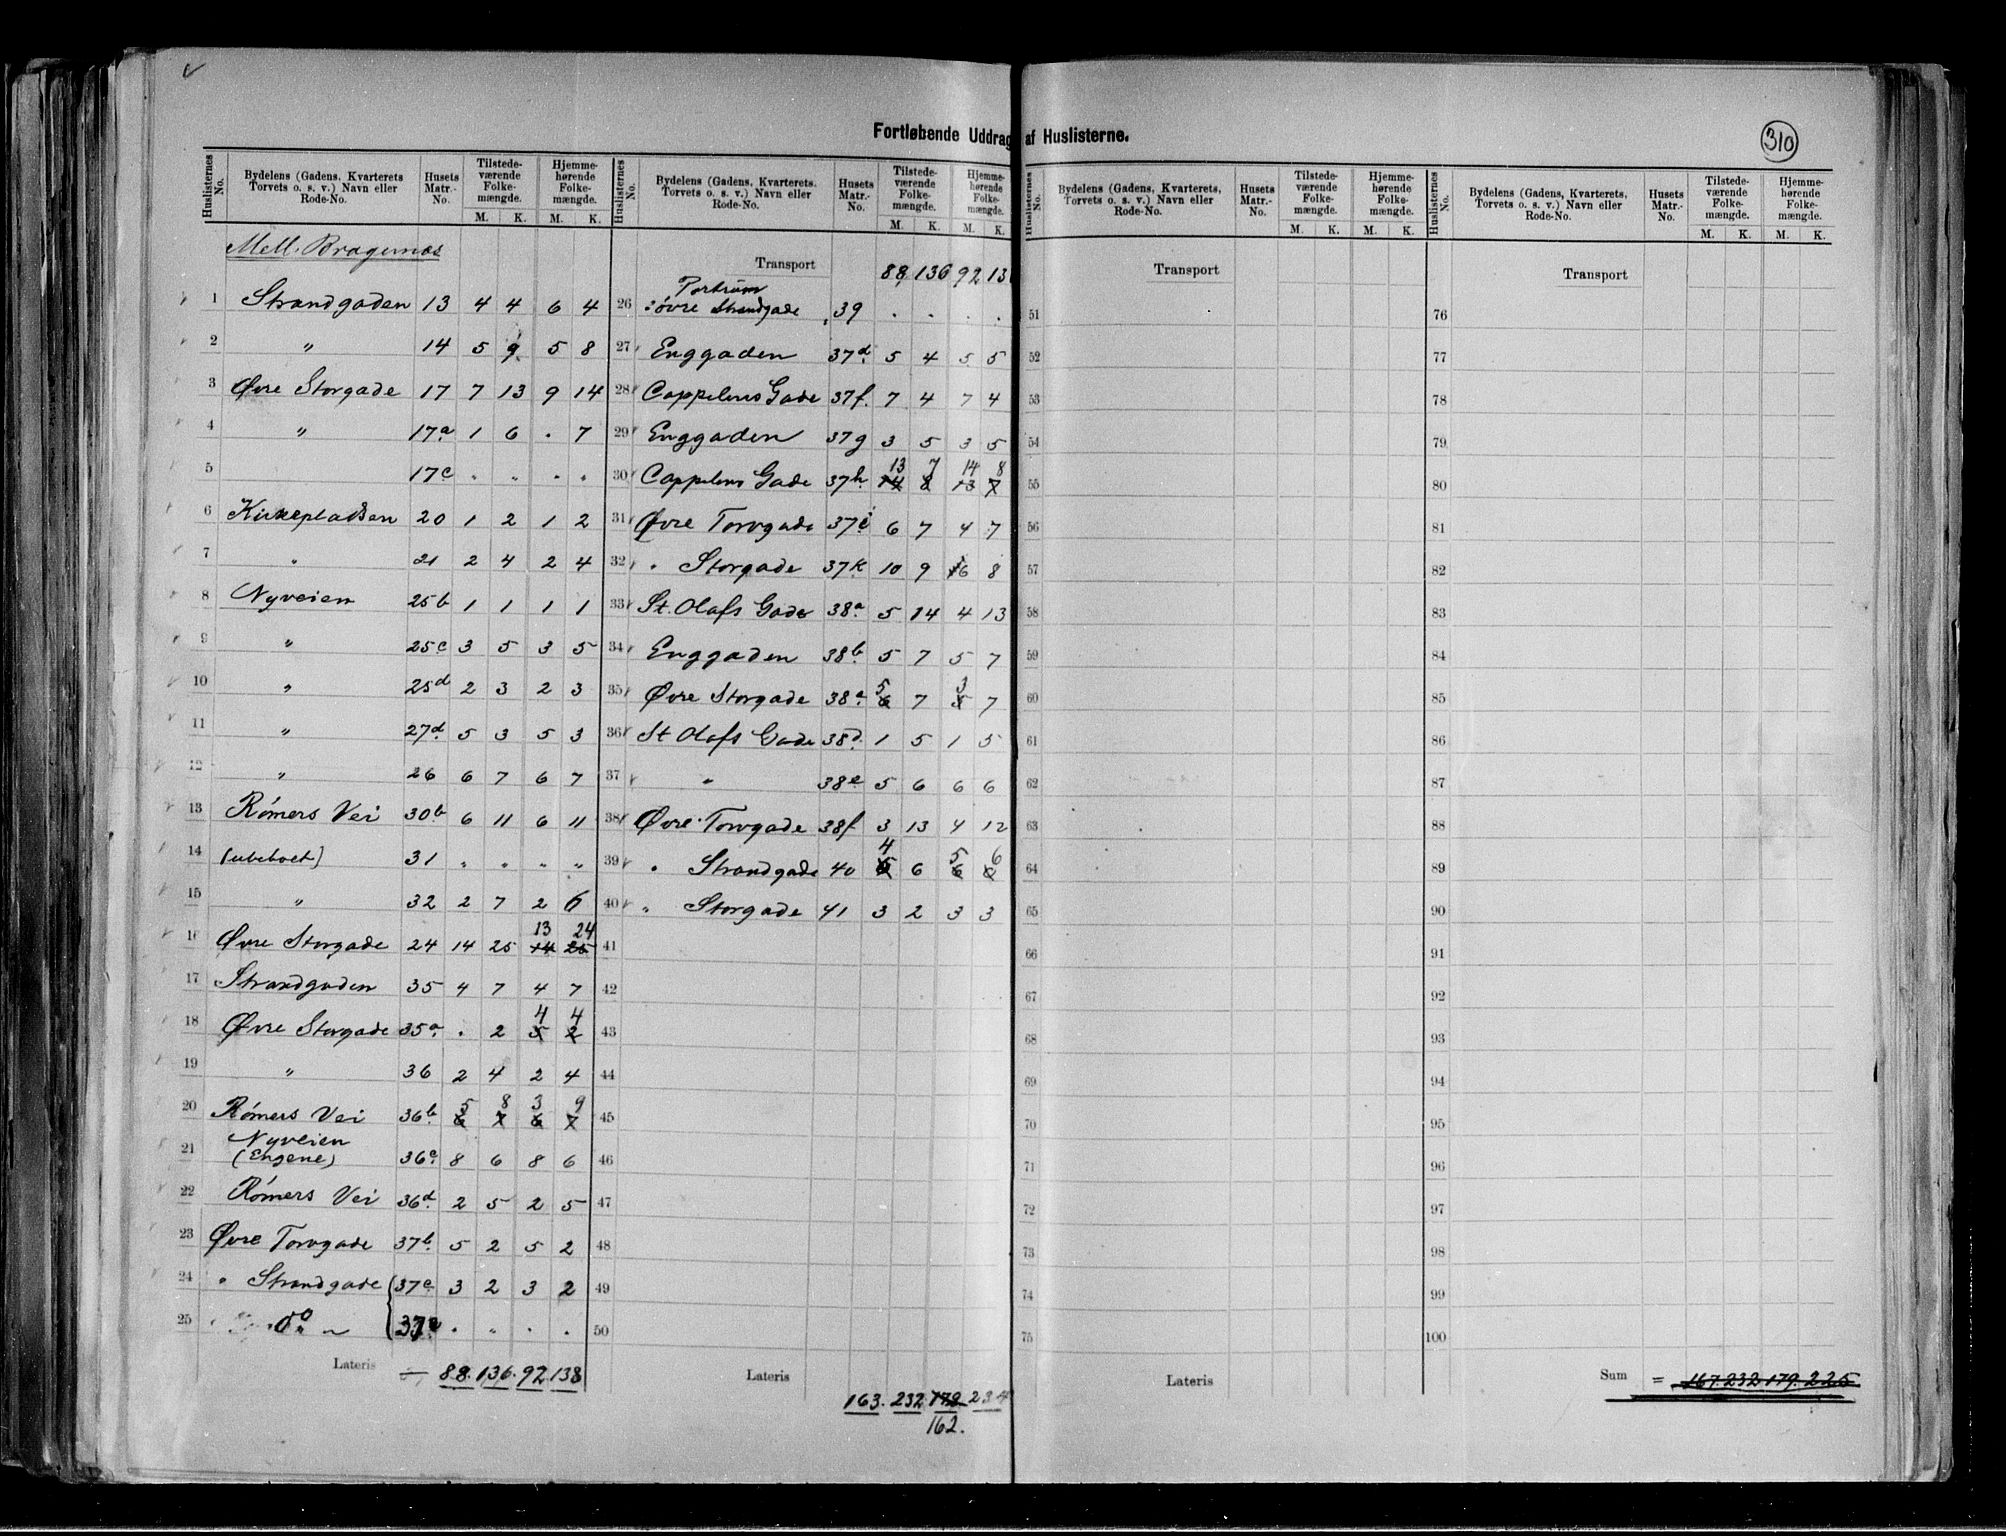 Fortløbende Uddrag af Huslisterne.
310
Huslisternes No. | Bydelens (Gadens, Kvarterets Torvets o. s. v.) Navn eller Rode-No. | Husets Matr.-No. | Tilstedeværende Folkemængde. M. K. | Hjemmehørende Folkemængde. M. K.
Mell. Bragernæs
1 Strandgaden 13 4 4 6 4
2 " 14 5 9 5 8
3 Øvre Storgade 17 7 13 9 14
4 " 17a 1 6 . 7
5 17c " " . "
6 Kirkepladsen 20 1 2 1 2
7 " 21 2 4 2 4
8 Nyveien 25b 1 1 1 1
9 " 25c 3 5 3 5
10 " 25d 2 3 2 3
11 " 27d. 5 3 5 3
12 " 26 6 7 6 7
13 Rømers Vei 30b 6 11 6 11
14 (ubeboet) 31 " " " "
15 " 32 2 7 2 6
13 24
16 Øvre Storgade 24 14 25 14 25
17 Strandgaden 35 4 7 4 7
4 4
18 Øvre Storgade 35a. . 2 5 2
19 " 36 2 4 2 4
5 8 3 9
20 Rømers Vei 36b. 6 7 6 7
Nyveien
21 (Engene) 36c. 8 6 8 6
22 Rømers Vei 36d. 2 5 2 5
23 Øvre Torvgade 37b. 5 2 5 2
24 " Strandgade 37c 3 2 3 2
25 do 37a . " . .
Lateris 88. 136. 92. 138
Huslisternes No. | Bydelens (Gadens, Kvarterets, Torvets o. s. v.) Navn eller Rode-No. | Husets Matr.-No. | Tilstedeværende Folkemængde. M. K. | Hjemmehørende Folkemængde. M. K.
Transport 88 136 92 13
26 Øvre Strandgade 39 . . . .
27 Enggaden 37d. 5 4 5 5
28 Cappelens Gade 37f. 7 4 7 4
29 Enggaden 37g 3 5 3 5
13 7 14 8
30 Cappelens Gade 37h. 14 8 13 7
31 Øvre Torvgade 37i 6 7 4 7
32 " Storgade 37k 10 9 16 8
33 St. Olafs Gade 38a. 5 14 4 13
34 Enggaden 38b. 5 7 5 7
5 3
35 Øvre Storgade 38a. 6 7 5 7
36 St Olafs Gade 38d. 1 5 1 5
37 " 38e 5 6 6 6
38 Øvre Torvgade 38f 3 13 4 12
4 5 6
39 " Strandgade 40 6 6
40 " Storgade 41 3 2 3 3
41
42
43
44
45
46
47
48
49
50
Lateris 163. 232. 234
162.
Huslisternes No. | Bydelens (Gadens, Kvarterets, Torvets o. s. v.) Navn eller Rode-No. | Husets Matr.-No. | Tilstedeværende Folkemængde. M. K. | Hjemmehørende Folkemængde. M. K.
Transport
51
52
53
54
55
56
57
58
59
60
61
62
63
64
65
66
67
68
69
70
71
72
73
74
75
Lateris
Huslisternes No. | Bydelens (Gadens, Kvarterets, Torvets o. s. v.) Navn eller Rode-No. | Husets Matr.-No. | Tilstedeværende Folkemængde. M. K. | Hjemmehørende Folkemængde. M. K.
Transport
76
77
78
79
80
81
82
83
84
85
86
87
88
89
90
91
92
93
94
95
96
97
98
99
100
Sum = 167. 232 179. 225